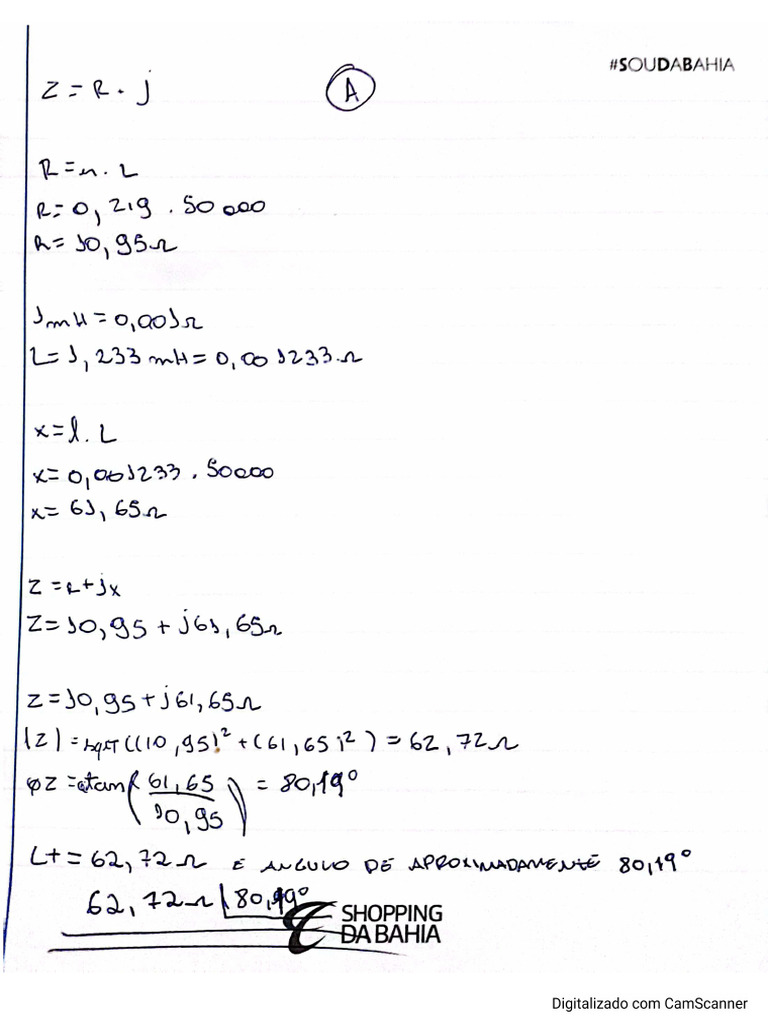 #SOUDABAHIA
Z = R . j
A
R = r . L
R = 0,219 . 50 000
R = 10,95 Ω
1mH = 0,001Ω
L = 1,233 mH = 0,001233Ω
x = l . L
x = 0,001233 . 50000
x = 61,65Ω
Z = R + jx
Z = 10,95 + j61,65Ω
Z = 10,95 + j61,65Ω
|Z| = sqrt((10,95)² + (61,65)²) = 62,72Ω
φZ = atan(61,65/10,95) = 80,19°
Lt = 62,72Ω E ANGULO DE APROXIMADAMENTE 80,19°
62,72Ω |80,19°
SHOPPING
DA BAHIA
Digitalizado com CamScanner